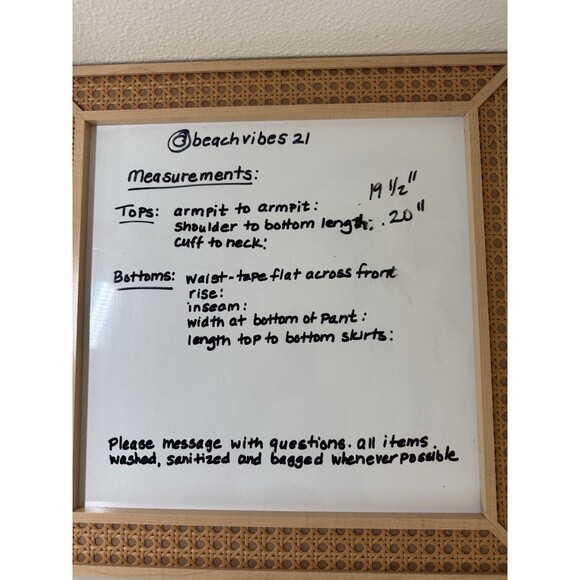 @beachvibes 21
Measurements:
Tops: armpit to armpit: 19 1/2"
shoulder to bottom length: 20"
cuff to neck:
Bottoms: waist-tape flat across front
rise:
inseam:
width at bottom of pant:
length top to bottom skirts:
Please message with questions. all items
washed, sanitized and bagged whenever possible